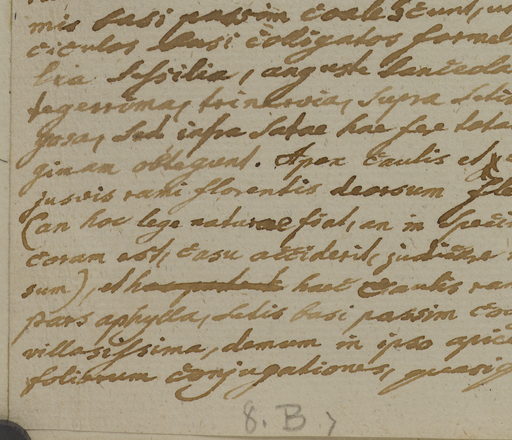 mis basi passim coalescunt, u
ciculos basi colligatos formen
lia sessilia, anguste lanceola
tegerrima, trinervia, supra seti
gosa, sed infra setae hae fere tota
ginam obtegunt. Apex caulis et
jusvis rami florentis deorsum fle
(an hoc lege naturae fiat, an in speci
coram est, casu acciderit, judicare
sum), et haec caulis ra
pars aphylla, setis basi passim co
villosissima, demum in ipso apice
foliorum conjugationes, quasi
8. B.